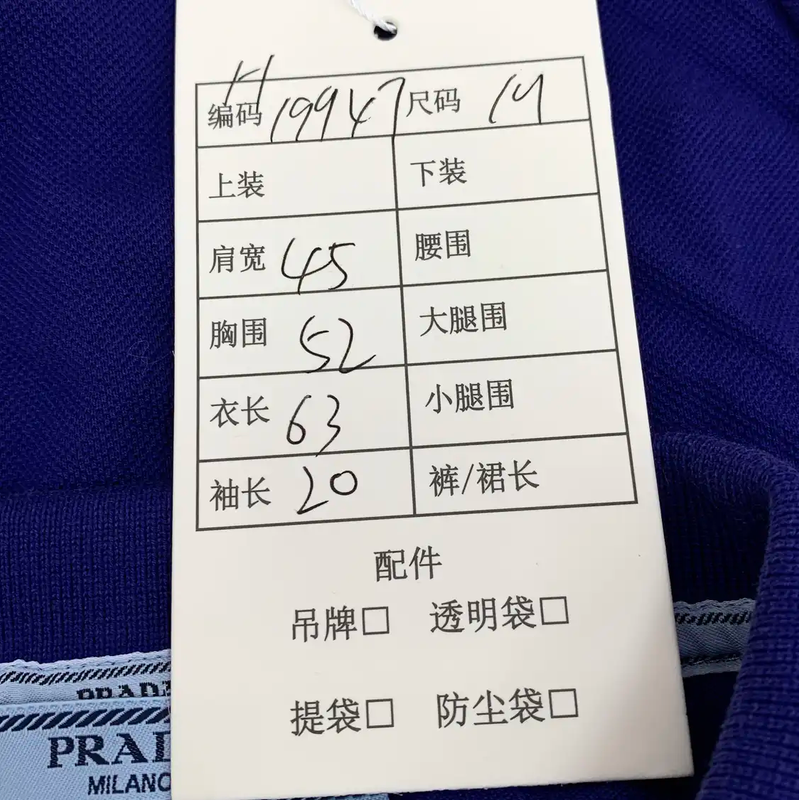 H
编码 19947 尺码 M
上装 下装
肩宽 45 腰围
胸围 52 大腿围
衣长 63 小腿围
袖长 20 裤/裙长
配件
吊牌□ 透明袋□
提袋□ 防尘袋□
PRADA
PRAD
MILANO